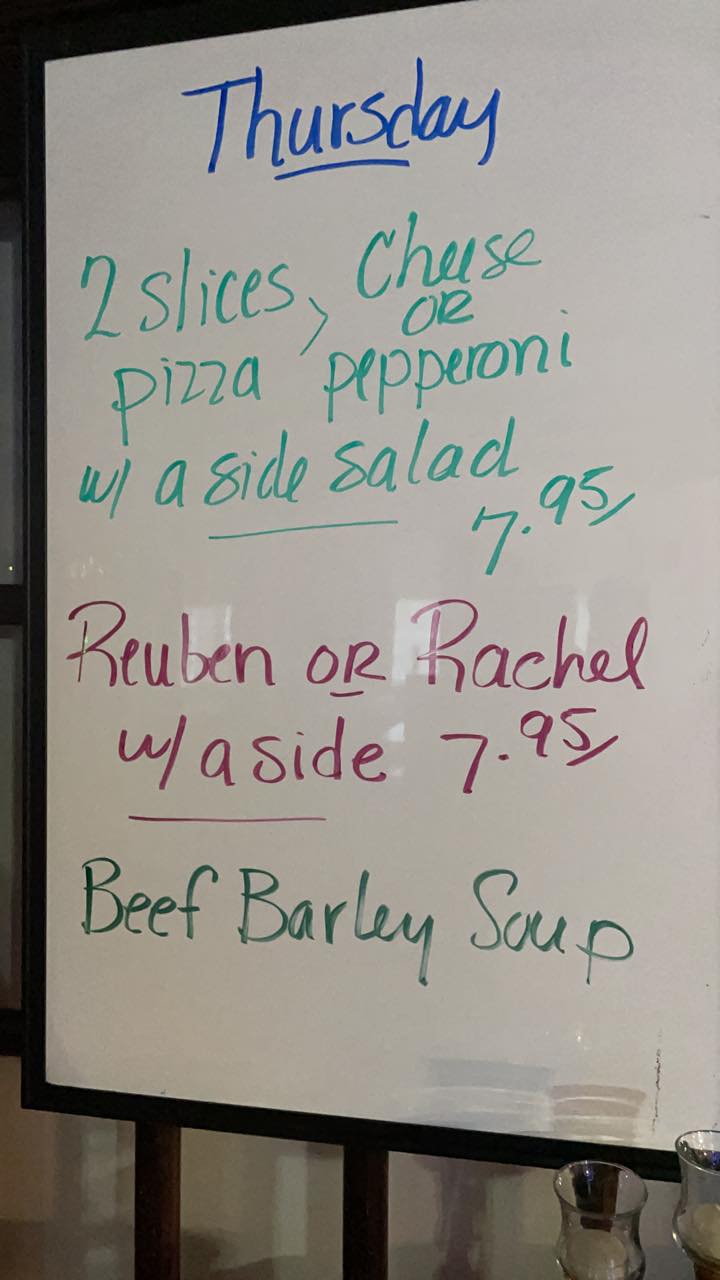 Thursday
2 slices, Cheese
OR
pizza pepperoni
w/ a side salad
7.95
Reuben OR Rachel
w/ a side 7.95
Beef Barley Soup